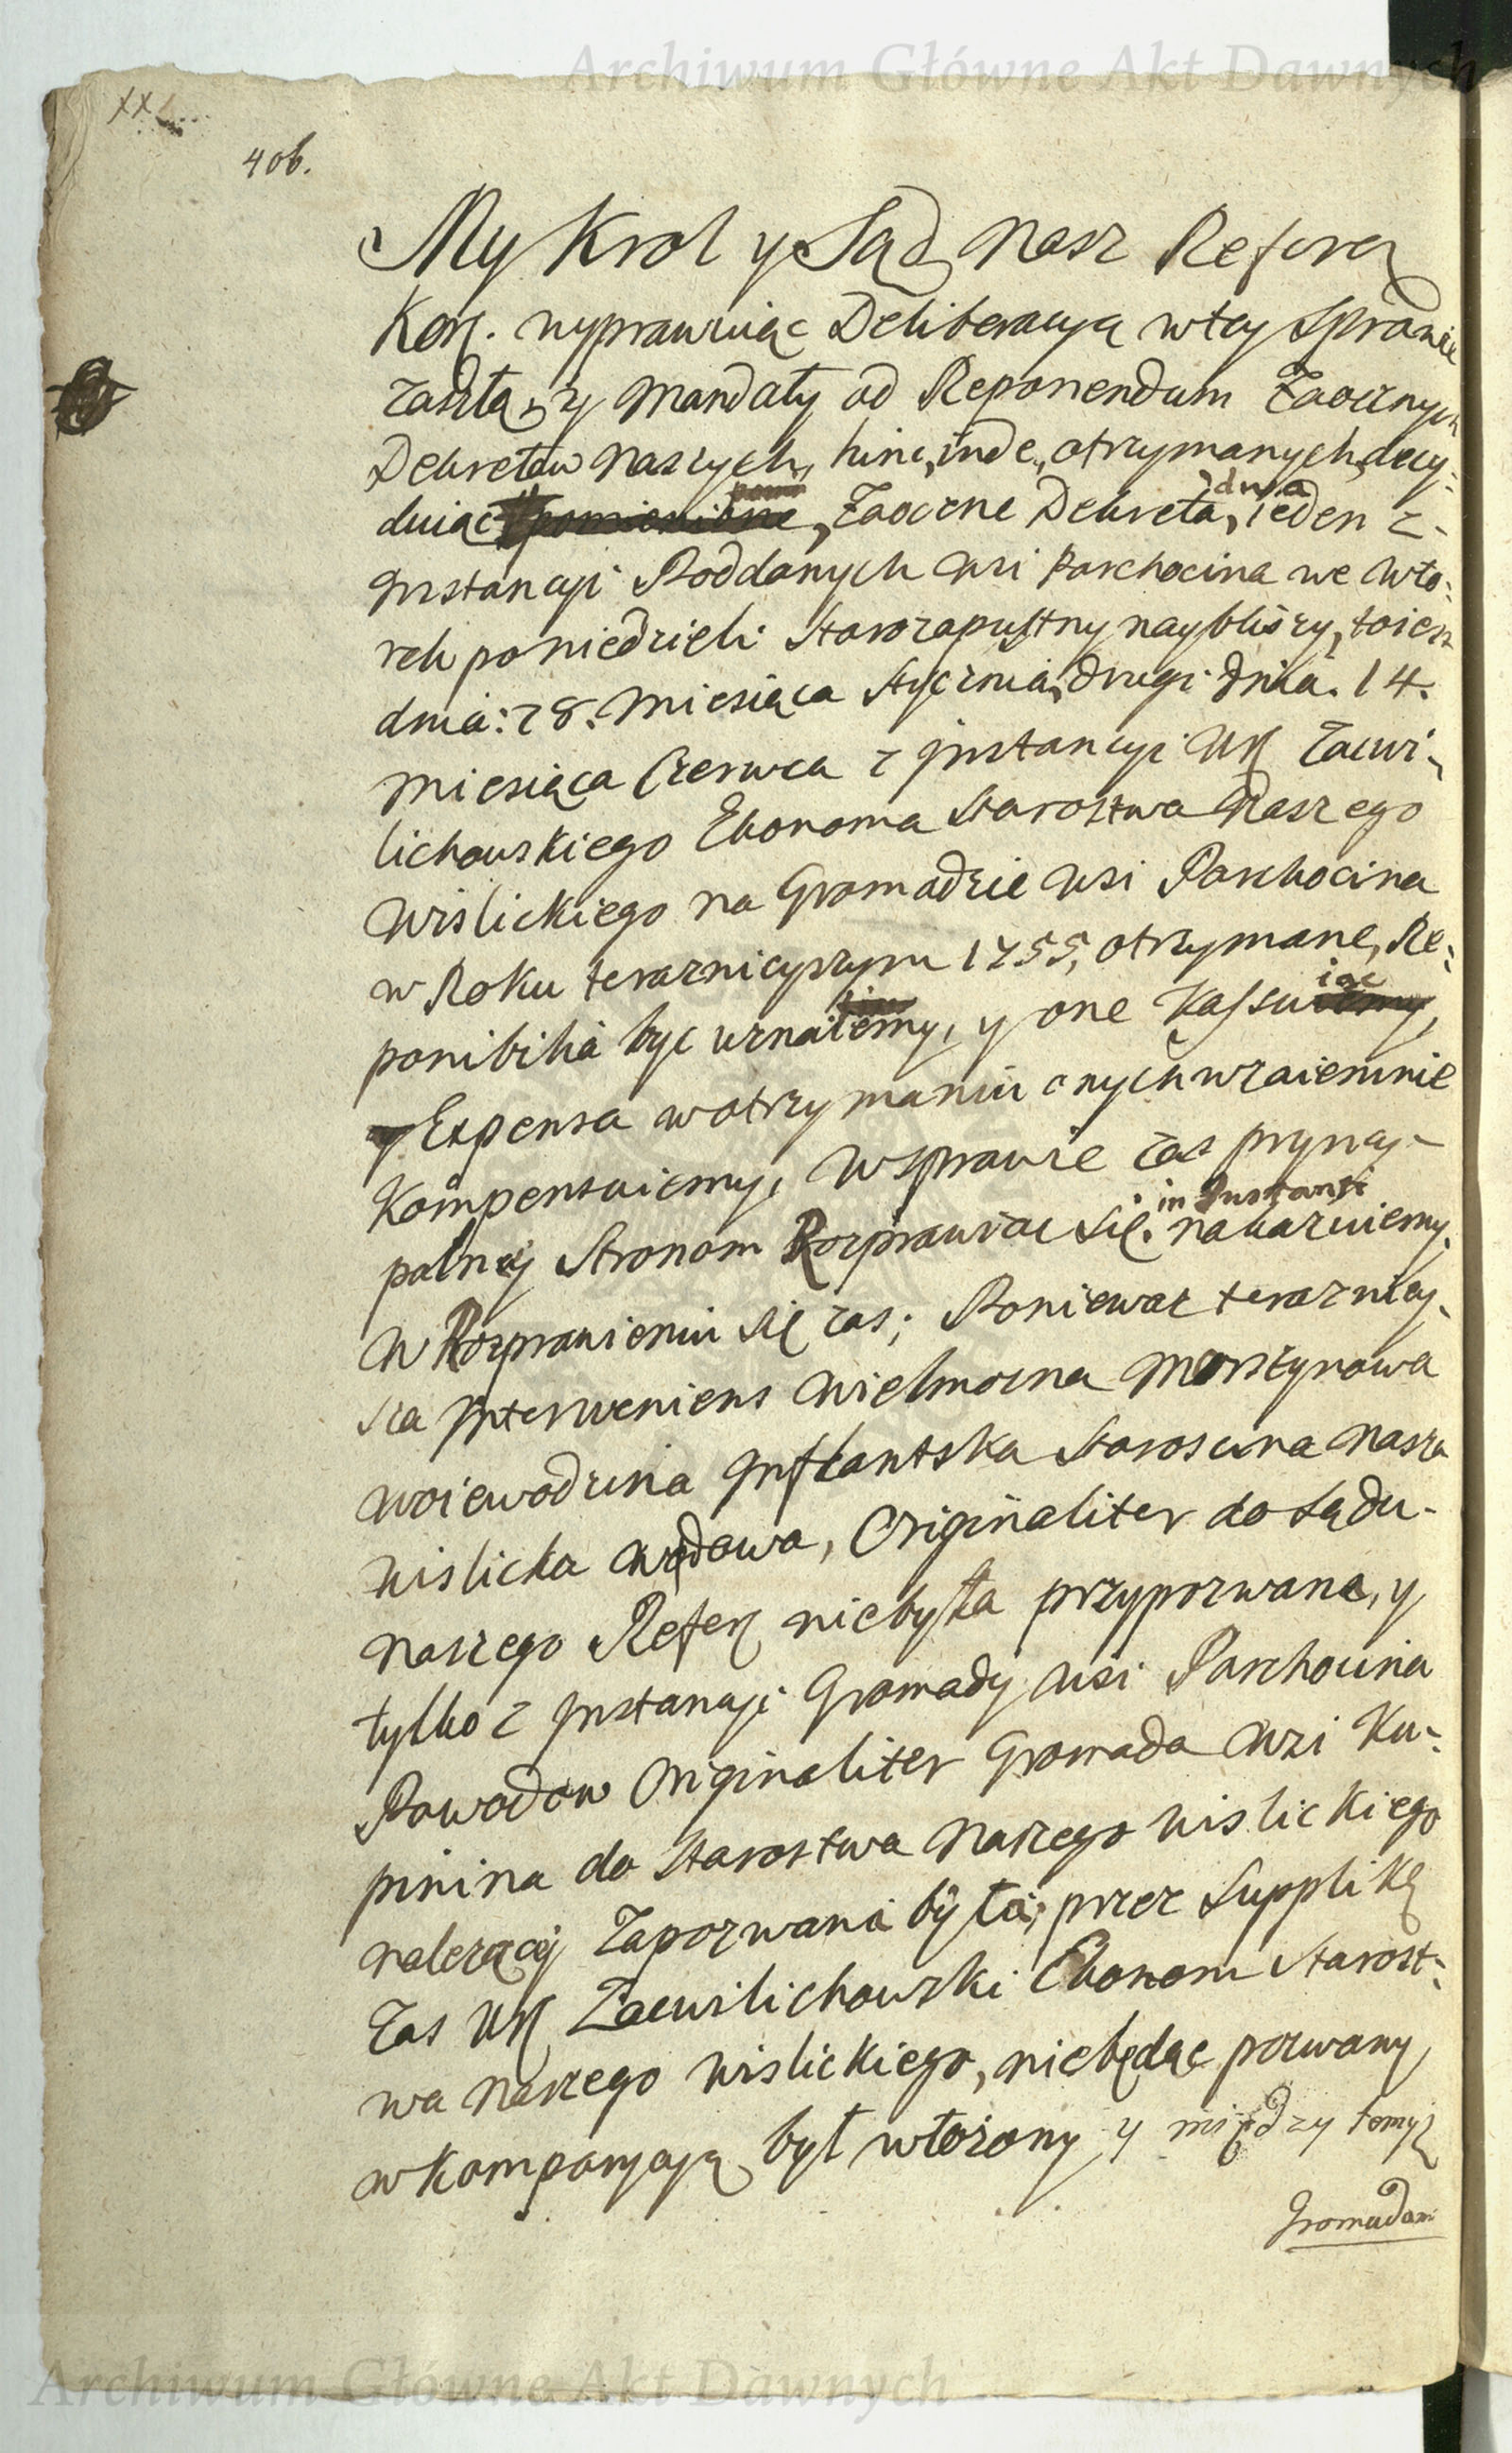 Archiwum Główne Akt Dawnych
XX
406.
My Krol y Sąd Nasz Referen
Kon. wyprawuiąc Deliberacyą w tey Sprawie
zaszłą, y Mandaty od Reponendum Zaocznych
Dekretow Naszych, hinc, inde, otrzymanych, decy-
duiąc pomienione, Zaoczne Dekreta, dwa ieden z
Instancyi Poddanych wsi Parchocina we Wto-
rek po niedzieli Starozapustny naybliższy, toiest
dnia: 28. Miesiąca Stycznia, drugi dnia. 14.
Miesiąca Czerwca z Instancyi Ur. Zacwi-
lichowskiego Ekonoma Starostwa Naszego
Wislickiego na Gromadzie wsi Parchocina
w Roku teraznieyszym 1755, otrzymane, Re-
ponibilia byc uznaiemy, y one Kassuiąc
Expensa w otrzymaniu onych wzaiemnie
Kompensuiemy, W sprawie zas pryncy-
palney Stronom Rozprawiac się. in Instanti nakazuiemy.
W Rozprawieniu się zas; Poniewaz terazniey-
sza Interweniens Wielmozna Morsztynowa
Woiewodzina Inflantska Staroscina Nasza
Wislicka Wdowa, Originaliter do Sądu
Naszego Refer niebyła przypozwana, y
tylko z Instancyi Gromady wsi Parchocina
Powodow Originaliter Gromada wsi Ku-
pinina do Starostwa Naszego Wislickiego
nalezącey Zapozwana była; przez Supplikę
Zas Ur. Zacwilichowski Ekonom Starost-
wa Naszego Wislickiego, niebędąc pozwany,
w Komparycyą był włozony y między temyz
Gromadam
Archiwum Główne Akt Dawnych